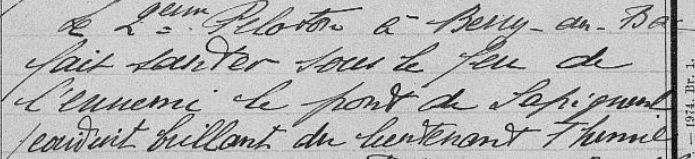 Le 2ème Peloton à Berry-au-Ba
fait sauter sous le feu de
l'ennemi le pont de Sapigneul
conduit brillant du lieutenant Thomé
— 1924. Br. 1.